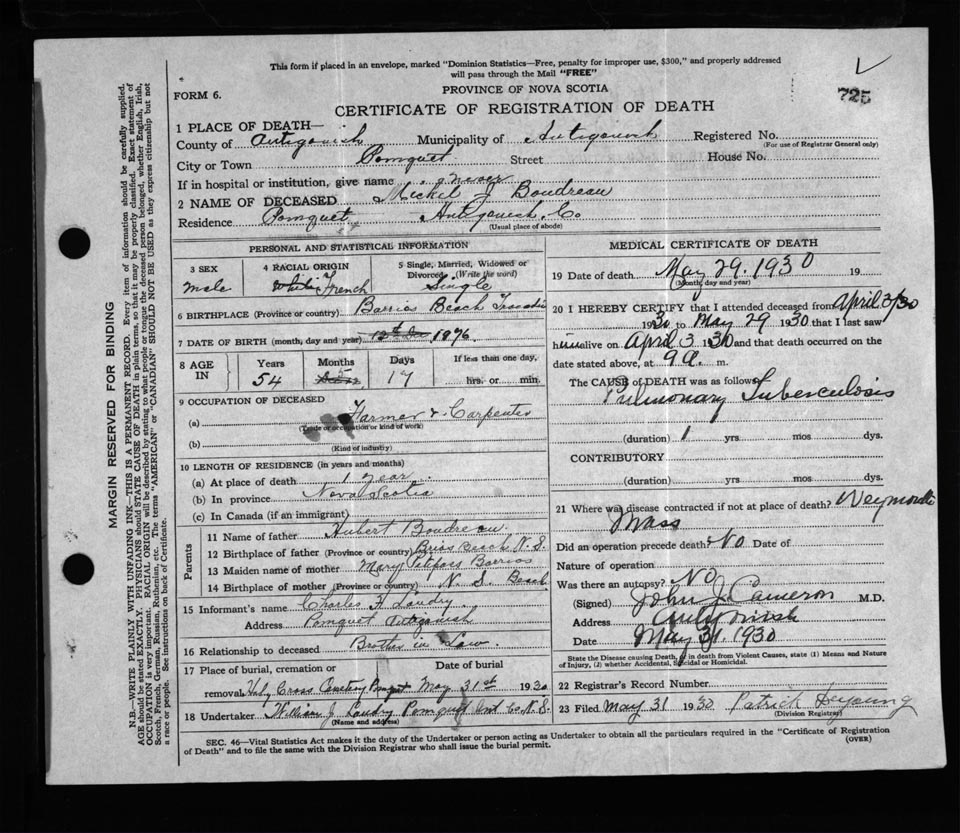 This form if placed in an envelope, marked "Dominion Statistics—Free, penalty for improper use, $300," and properly addressed
will pass through the Mail "FREE"
PROVINCE OF NOVA SCOTIA
725
FORM 6.
CERTIFICATE OF REGISTRATION OF DEATH
1 PLACE OF DEATH—
County of Antigonish Municipality of Antigonish Registered No.
(For use of Registrar General only)
City or Town Pomquet Street House No.
If in hospital or institution, give name never
2 NAME OF DECEASED Michel J Boudreau
Residence Pomquet Antigonish Co
(Usual place of abode)
PERSONAL AND STATISTICAL INFORMATION
3 SEX 4 RACIAL ORIGIN 5 Single, Married, Widowed or
Divorced (Write the word)
male White French Single
6 BIRTHPLACE (Province or country) Barrios Beach
7 DATE OF BIRTH (month, day and year) 1876
8 AGE IN Years Months Days If less than one day,
54 5 17 hrs. or min.
9 OCCUPATION OF DECEASED
(a) Farmer & Carpenter
(Trade or occupation or kind of work)
(b)
(Kind of industry)
10 LENGTH OF RESIDENCE (in years and months)
(a) At place of death 1 year
(b) In province Nova Scotia
(c) In Canada (if an immigrant)
Parents
11 Name of father Hubert Boudreau
12 Birthplace of father (Province or country) Beach N.S.
13 Maiden name of mother Mary Barrios
14 Birthplace of mother (Province or country) N.S. Beach
15 Informant's name Charles H Landry
Address Pomquet Antigonish
16 Relationship to deceased Brother in Law
17 Place of burial, cremation or Date of burial
removal Holy Cross Cemetery May 31st 1930
18 Undertaker William J. Landry Pomquet Ant Co. N.S.
(Name and address)
MEDICAL CERTIFICATE OF DEATH
19 Date of death May 29. 1930 19
(Month, day and year)
20 I HEREBY CERTIFY that I attended deceased from April 3/30
1930 to May 29 1930 that I last saw
him alive on April 3 1930 and that death occurred on
date stated above, at 9 a. m.
The CAUSE of DEATH was as follows
Pulmonary Tuberculosis
(duration) 1 yrs mos dys.
CONTRIBUTORY
(duration) yrs mos dys.
21 Where was disease contracted if not at place of death? Weymouth
Mass
Did an operation precede death? No Date of
Nature of operation
Was there an autopsy? NO
(Signed) John J. Cameron M.D.
Address Antigonish
Date May 31 1930
State the Disease causing Death, or in death from Violent Causes, state (1) Means and Nature
of Injury, (2) whether Accidental, Suicidal or Homicidal.
22 Registrar's Record Number
23 Filed May 31 1930 Patrick DeYoung
(Division Registrar)
SEC. 46—Vital Statistics Act makes it the duty of the Undertaker or person acting as Undertaker to obtain all the particulars required in the "Certificate of Registration
of Death" and to file the same with the Division Registrar who shall issue the burial permit.
(OVER)
MARGIN RESERVED FOR BINDING
N.B.—WRITE PLAINLY WITH UNFADING INK—THIS IS A PERMANENT RECORD. Every item of information should be carefully supplied.
AGE should be stated EXACTLY. PHYSICIANS should STATE CAUSE OF DEATH in plain terms, so that it may be properly classified. Exact statement of
OCCUPATION is very important. RACIAL ORIGIN will be described by stating to what people or tongue the deceased person belonged, whether English, Irish,
Scotch, French, German, Russian, Ruthenian, etc. The terms "AMERICAN" or "CANADIAN" SHOULD NOT BE USED as they express citizenship but not
a race or people. See instructions on back of Certificate.